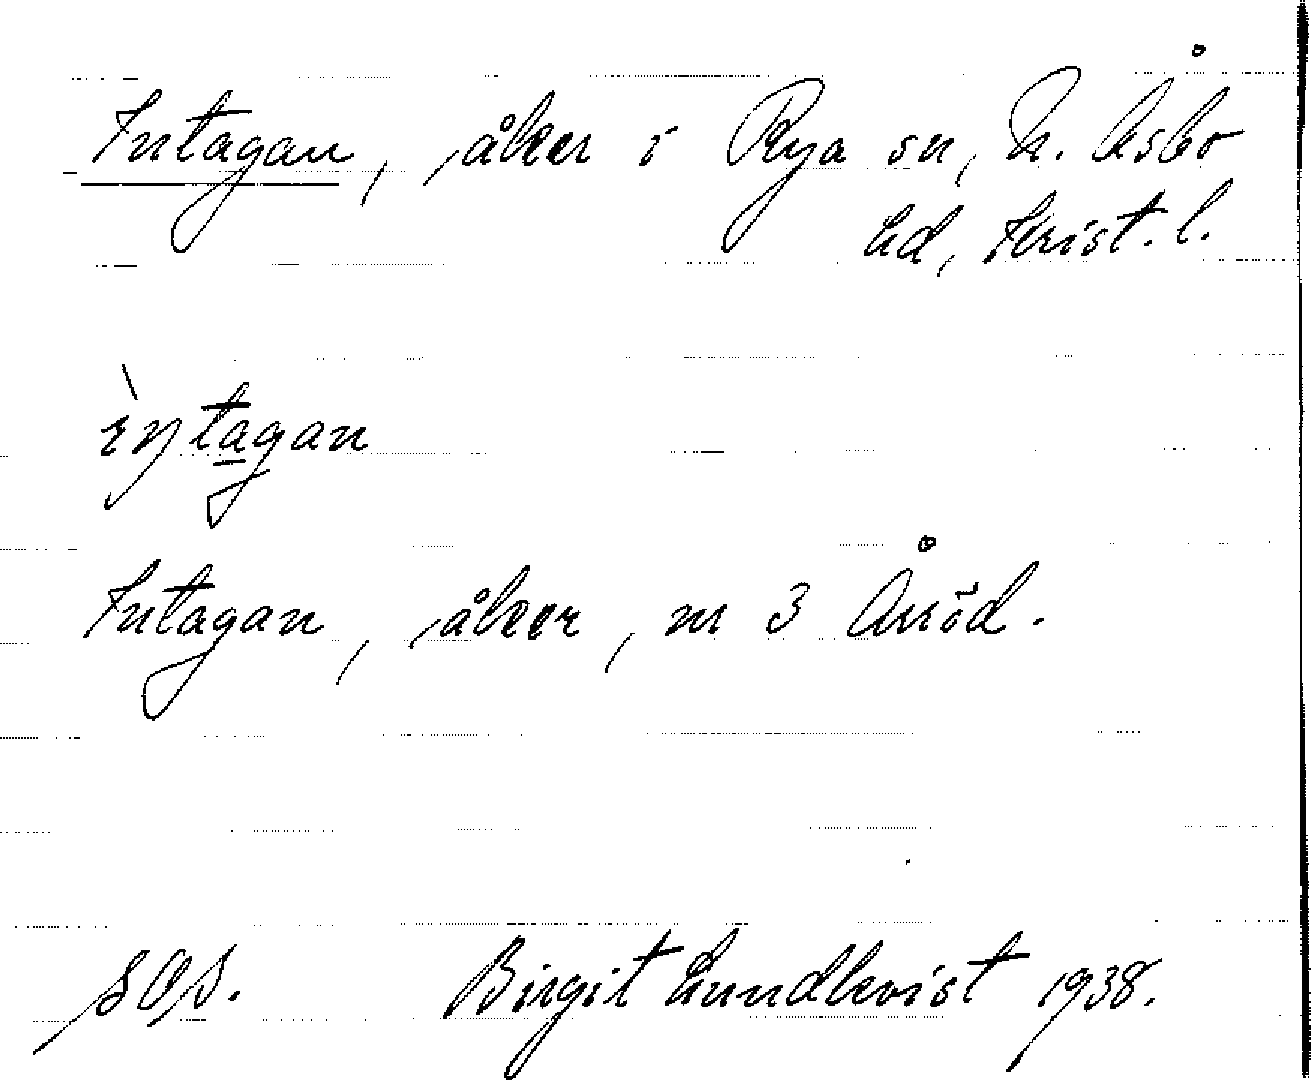 Intagan, åker i Rya sn, N. Åsbo
hd, Krist. l.
ɛ̀ŋta̲gan
Intagan, åker, nr 3 Arröd.
SOS. Birgit Lundkvist 1938.